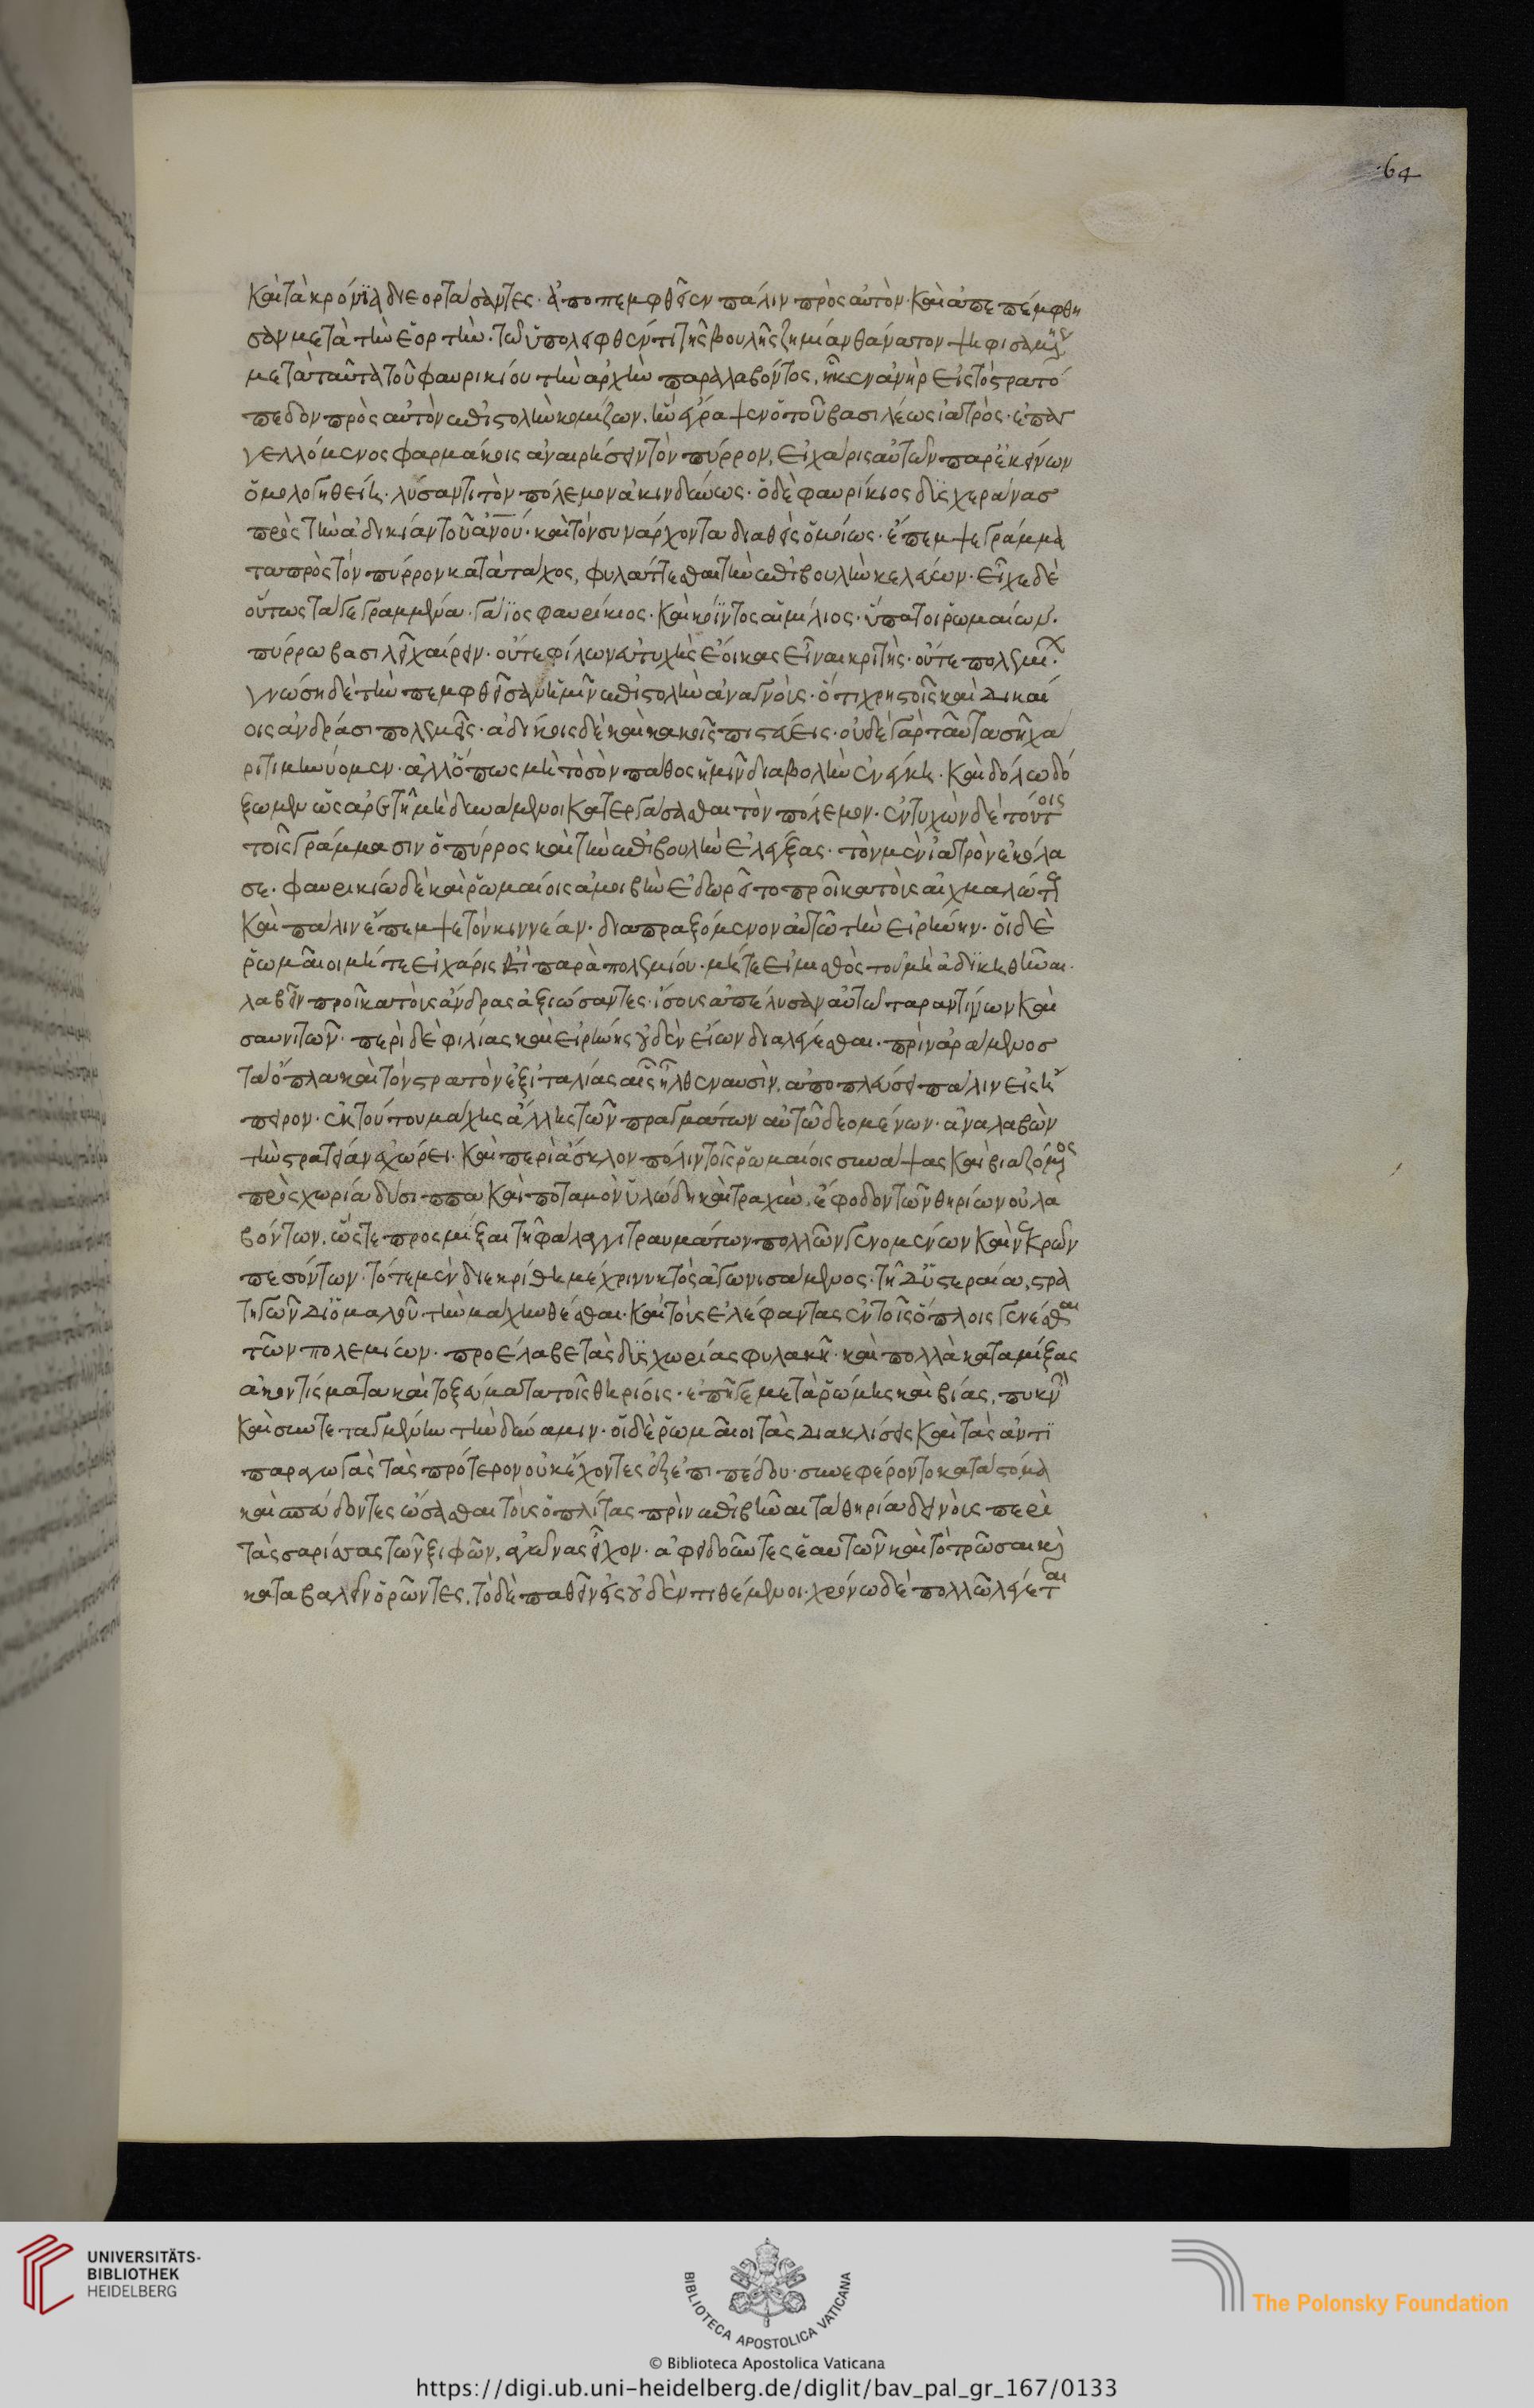 64
καὶ τὰ κρόνια διεορτάσαντες. ἀποπεμφθεῖεν πάλιν πρὸς αὐτὸν. καὶ ἀπεπέμφθη
σαν μετὰ τὴν ἑορτὴν. τῶ ὑπολειφθέντι τῆς βουλῆς ζημίαν θάνατον ψηφισαμένης.
μετὰ ταῦτα τοῦ φαυρικίου τὴν ἀρχὴν παραλαβόντος, ἧκεν ἀνὴρ εἰς τὸ στρατό
πεδον πρὸς αὐτὸν ἐπιστολὴν κομίζων. ἣν ἔγραψεν ὁ τοῦ βασιλέως ἰατρὸς. ἐπαγ
γελλόμενος φαρμάκοις ἀναιρήσειν τὸν πύρρον, εἰ χάρις αὐτῶ παρ' ἐκείνων
ὁμολογηθείη. λύσαντι τὸν πόλεμον ἀκινδύνως. ὁ δὲ φαυρίκιος δυσχεράνας
πρὸς τὴν ἀδικίαν τοῦ ἀνου. καὶ τὸν συνάρχοντα διαθεὶς ὁμοίως. ἔπεμψε γράμμα
τα πρὸς τὸν πύρρον κατὰ τάχος, φυλάττεσθαι τὴν ἐπιβουλὴν κελεύων. εἶχε δὲ
οὕτως τὰ γεγραμμένα. γάϊος φαυρίκιος. καὶ κόϊντος αἰμίλιος. ὕπατοι ῥωμαίων.
πύρρω βασιλεῖ χαίρειν. οὔτε φίλων εὐτυχὴς ἔοικας εἶναι κριτὴς. οὔτε πολεμίων.
γνώση δὲ τὴν πεμφθεῖσαν ἡμῖν ἐπιστολὴν ἀναγνοὺς. ὅτι χρηστοῖς καὶ δικαί
οις ἀνδράσι πολεμεῖς. ἀδίκοις δὲ καὶ κακοῖς πιστεύεις. οὐδὲ γὰρ ταῦτα σῆ χά
ριτι μηνύομεν. ἀλλ' ὅπως μὴ τὸ σὸν πάθος ἡμῖν διαβολὴν ἐνέγκη. καὶ δόλω δό
ξωμεν ὡς ἀρετῆ μὴ δυνάμενοι κατεργάσασθαι τὸν πόλεμον. ἐντυχὼν δὲ τούτοις
τοῖς γράμμασιν ὁ πύρρος καὶ τὴν ἐπιβουλὴν ἐλέγξας. τὸν μὲν ἰατρὸν ἐκόλα
σε. φαυρικίω δὲ καὶ ῥωμαίοις ἀμοιβὴν ἐδωρεῖτο προῖκα τοὺς αἰχμαλώτους
καὶ πάλιν ἔπεμψε τὸν κιννέαν. διαπραξόμενον αὐτῶ τὴν εἰρήνην. οἱ δὲ
ῥωμαῖοι μήτε εἰ χάρις ἐστὶ παρὰ πολεμίου. μήτε εἰ μισθὸς τοῦ μὴ ἀδικηθῆναι.
λαβεῖν προῖκα τοὺς ἄνδρας ἀξιώσαντες. ἴσους ἀπέλυσαν αὐτῶ ταραντίνων καὶ
σαυνιτῶν. περὶ δὲ φιλίας καὶ εἰρήνης οὐδὲν εἴων διαλέγεσθαι. πρὶν ἀράμενος
τὰ ὅπλα καὶ τὸν στρατὸν ἐξ ἰταλίας αἷς ἦλθεν ναυσὶν. ἀποπλεύσει πάλιν εἰς ἤ
πειρον. ἐκ τούτου μάχης ἄλλης τῶν πραγμάτων αὐτῶ δεομένων. ἀναλαβὼν
τὴν στρατείαν ἐχώρει. καὶ περὶ ἄσκλον πόλιν τοῖς ῥωμαίοις συνάψας καὶ βιαζόμενος
πρὸς χωρία δύσιππα καὶ ποταμὸν ὑλώδη καὶ τραχὺν. ἔφοδον τῶν θηρίων οὐ λα
βόντων. ὥστε προσμίξαι τῆ φάλαγγι τραυμάτων πολλῶν γενομένων καὶ νεκρῶν
πεσόντων. τότε μὲν διεκρίθη μέχρι νυκτὸς ἀγωνισάμενος. τῆ δ' ὑστεραία, στρα
τηγῶν δι' ὁμαλοῦ τὴν μάχην θέσθαι. καὶ τοὺς ἐλέφαντας ἐν τοῖς ὅπλοις γενέσθαι
τῶν πολεμίων. προέλαβε τὰς δυσχωρίας φυλακῆ. καὶ πολλὰ καταμίξας
ἀκοντίσματα καὶ τοξεύματα τοῖς θηρίοις. ἐπῆγε μετὰ ῥώμης καὶ βίας, πυκνὴν
καὶ συντεταγμένην τὴν δύναμιν. οἱ δὲ ῥωμαῖοι τὰς διακλίσεις καὶ τὰς ἀντι
παραγωγὰς τὰς πρότερον οὐκ ἔχοντες ἐξ ἐπιπέδου. συνεφέροντο κατὰ στόμα
καὶ σπεύδοντες ὤσασθαι τοὺς ὁπλίτας πρὶν ἐπιβῆναι τὰ θηρία δεινοὺς περὶ
τὰς σαρίσας τῶν ξιφῶν, ἀγῶνας εἶχον. ἀφειδοῦντες ἑαυτῶν καὶ τὸ τρῶσαι καὶ
καταβαλεῖν ὁρῶντες. τὸ δὲ παθεῖν εἰς οὐδὲν τιθέμενοι. χρόνω δὲ πολλῶ λέγεται
UNIVERSITÄTS-
BIBLIOTHEK
HEIDELBERG
BIBLIOTECA APOSTOLICA VATICANA
The Polonsky Foundation
© Biblioteca Apostolica Vaticana
https://digi.ub.uni-heidelberg.de/diglit/bav_pal_gr_167/0133